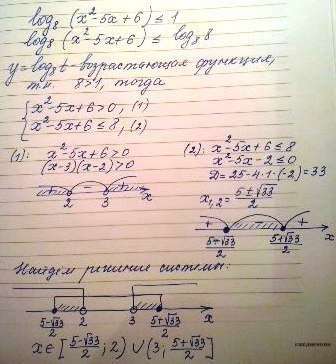 log₈ (x² - 5x + 6) ≤ 1
log₈ (x² - 5x + 6) ≤ log₈ 8
y = log₈ t - возрастающая функция,
т.к. 8>1, тогда
{ x² - 5x + 6 > 0, (1)
{ x² - 5x + 6 ≤ 8, (2)
(1): x² - 5x + 6 > 0
(x-3)(x-2) > 0
+ - + x
2 3
(2): x² - 5x + 6 ≤ 8
x² - 5x - 2 ≤ 0
D = 25 - 4·1·(-2) = 33
x₁,₂ = (5±√33)/2
+ - + x
(5-√33)/2 (5+√33)/2
Найдем решение системы:
(5-√33)/2 2 3 (5+√33)/2 x
x ∈ [(5-√33)/2; 2) ∪ (3; (5+√33)/2]